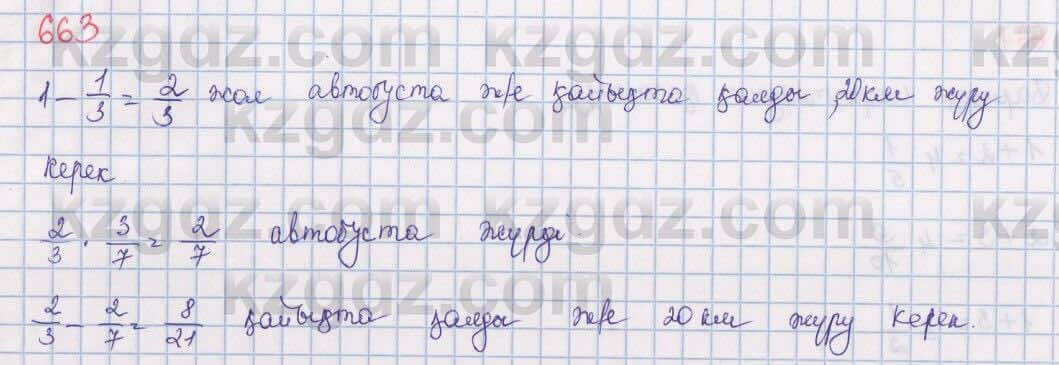 663
1 - 1/3 = 2/3 жол автобуста және қайықта қалды, 20 км жүру
керек
2/3 · 3/7 = 2/7 автобуста жүрді.
2/3 - 2/7 = 8/21 қайықта қалды және 20 км жүру керек.
kzgdz.com
kzgdz.com
kzgdz.com
kzgdz.com